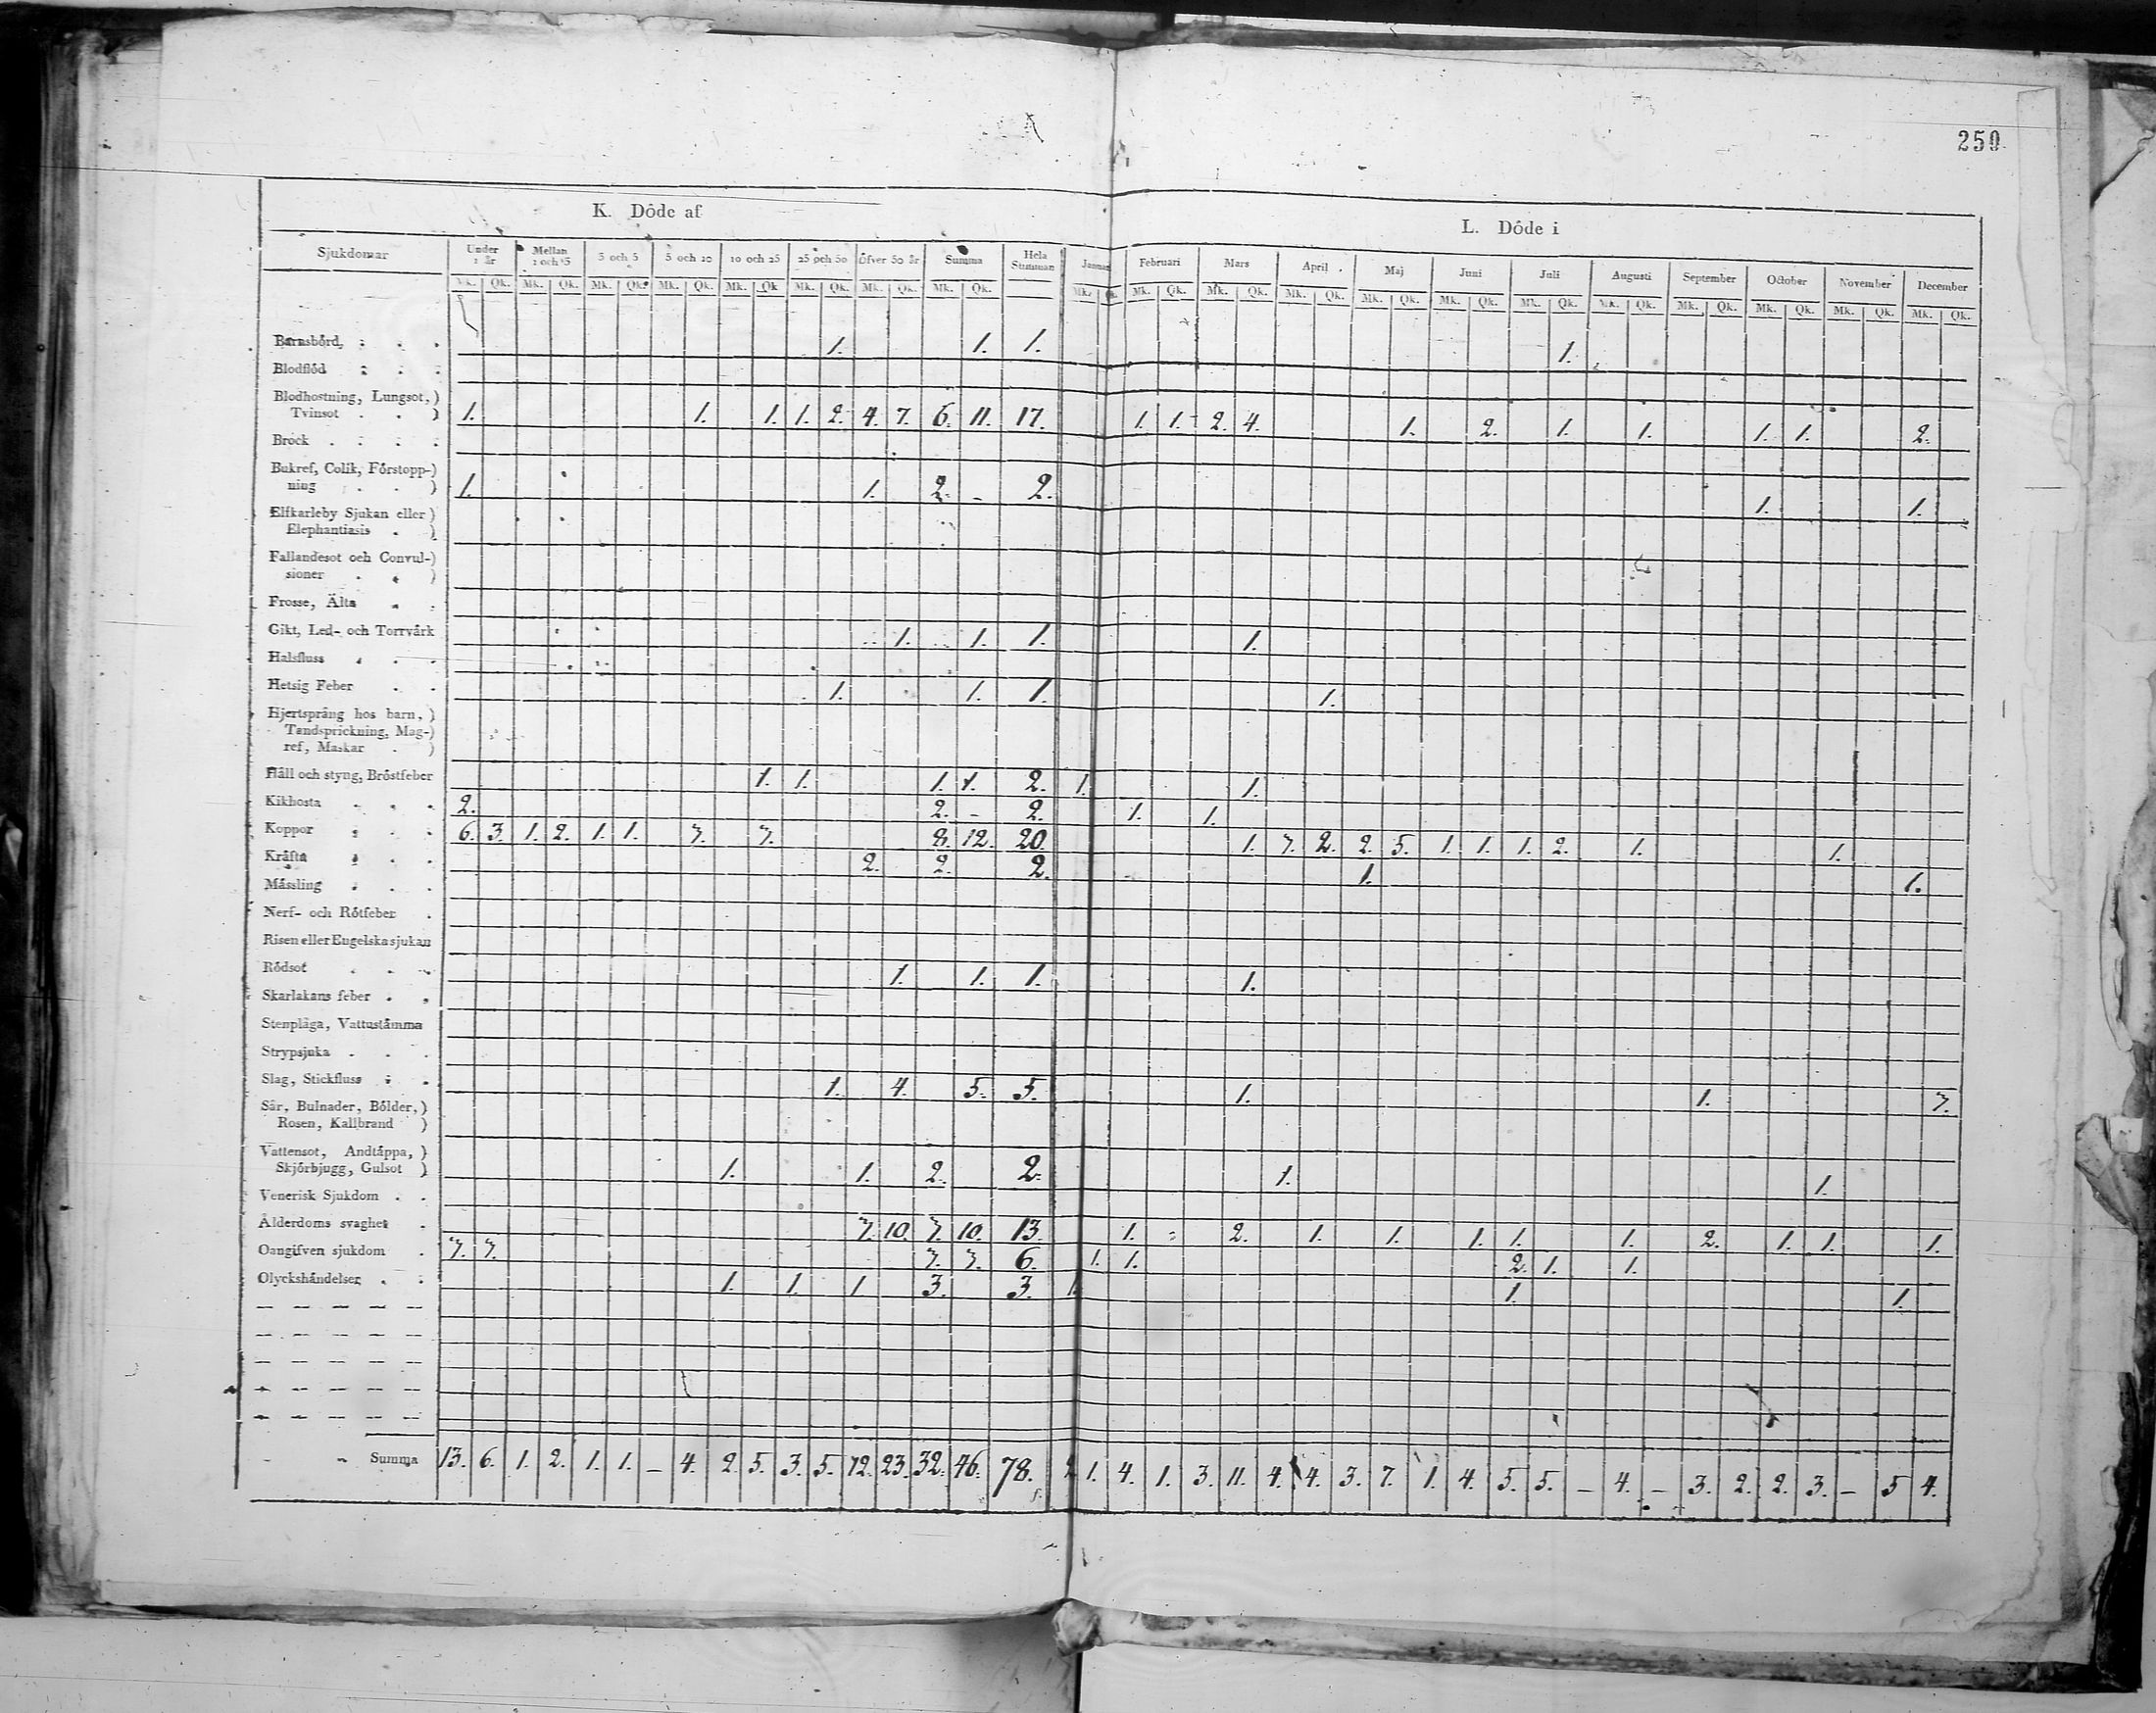 259
K. Döde af
L. Döde i
Sjukdomar Under 1 år Mellan 1 och 3 3 och 5 5 och 10 10 och 25 25 och 50 Öfver 50 år Summa Hela Summan Januari Februari Mars April Maj Juni Juli Augusti September October November December
Mk. Qk. Mk. Qk. Mk. Qk. Mk. Qk. Mk. Qk. Mk. Qk. Mk. Qk. Mk. Qk. Mk. Qk. Mk. Qk. Mk. Qk. Mk. Qk. Mk. Qk. Mk. Qk. Mk. Qk. Mk. Qk. Mk. Qk. Mk. Qk. Mk. Qk. Mk. Qk.
Barnsbörd, 1. 1. 1. 1.
Blodflöd
Blodhostning, Lungsot,)
Tvinsot . . ) 1. 1. 1. 1. 2. 4. 7. 6. 11. 17. 1. 1. 2. 4. 1. 2. 1. 1. 1. 1. 2.
Bröck
Bukref, Colik, Förstopp-)
ning . . ) 1. 1. 2. - 2. 1. 1.
Elfkarleby Sjukan eller)
Elephantiasis . )
Fallandesot och Convul-)
sioner . . )
Frosse, Älta
Gikt, Led- och Torrvärk 1. 1. 1. 1.
Halsfluss
Hetsig Feber 1. 1. 1. 1.
Hjertsprång hos barn,)
Tandsprickning, Mag-)
ref, Maskar . )
Håll och styng, Bröstfeber 1. 1. 1. 1. 2. 1. 1.
Kikhosta 2. 2. - 2. 1. 1.
Koppor 6. 3. 1. 2. 1. 1. 3. 3. 8. 12. 20. 1. 3. 2. 2. 5. 1. 1. 1. 2. 1. 1.
Kräfta 2. 2. 2. 1. 1.
Mässling
Nerf- och Rötfeber
Risen eller Engelska sjukan
Rödsot 1. 1. 1. 1.
Skarlakans feber
Stenplåga, Vattustämma
Strypsjuka
Slag, Stickfluss 1. 4. 5. 5. 1. 1. 3.
Sår, Bulnader, Bölder,)
Rosen, Kallbrand )
Vattensot, Andtäppa,)
Skjörbjugg, Gulsot ) 1. 1. 2. 2. 1. 1.
Venerisk Sjukdom
Ålderdoms svaghet 3. 10. 3. 10. 13. 1. 2. 1. 1. 1. 1. 1. 2. 1. 1. 1.
Oangifven sjukdom 3. 3. 3. 3. 6. 1. 1. 2. 1. 1.
Olyckshändelser 1. 1. 1 3. 3. 1. 1. 1.
Summa 13. 6. 1. 2. 1. 1. - 4. 2. 5. 3. 5. 12. 23. 32. 46. 78. 2. 1. 4. 1. 3. 11. 4. 4. 3. 7. 1. 4. 5. 5. - 4. - 3. 2. 2. 3. - 5 4.